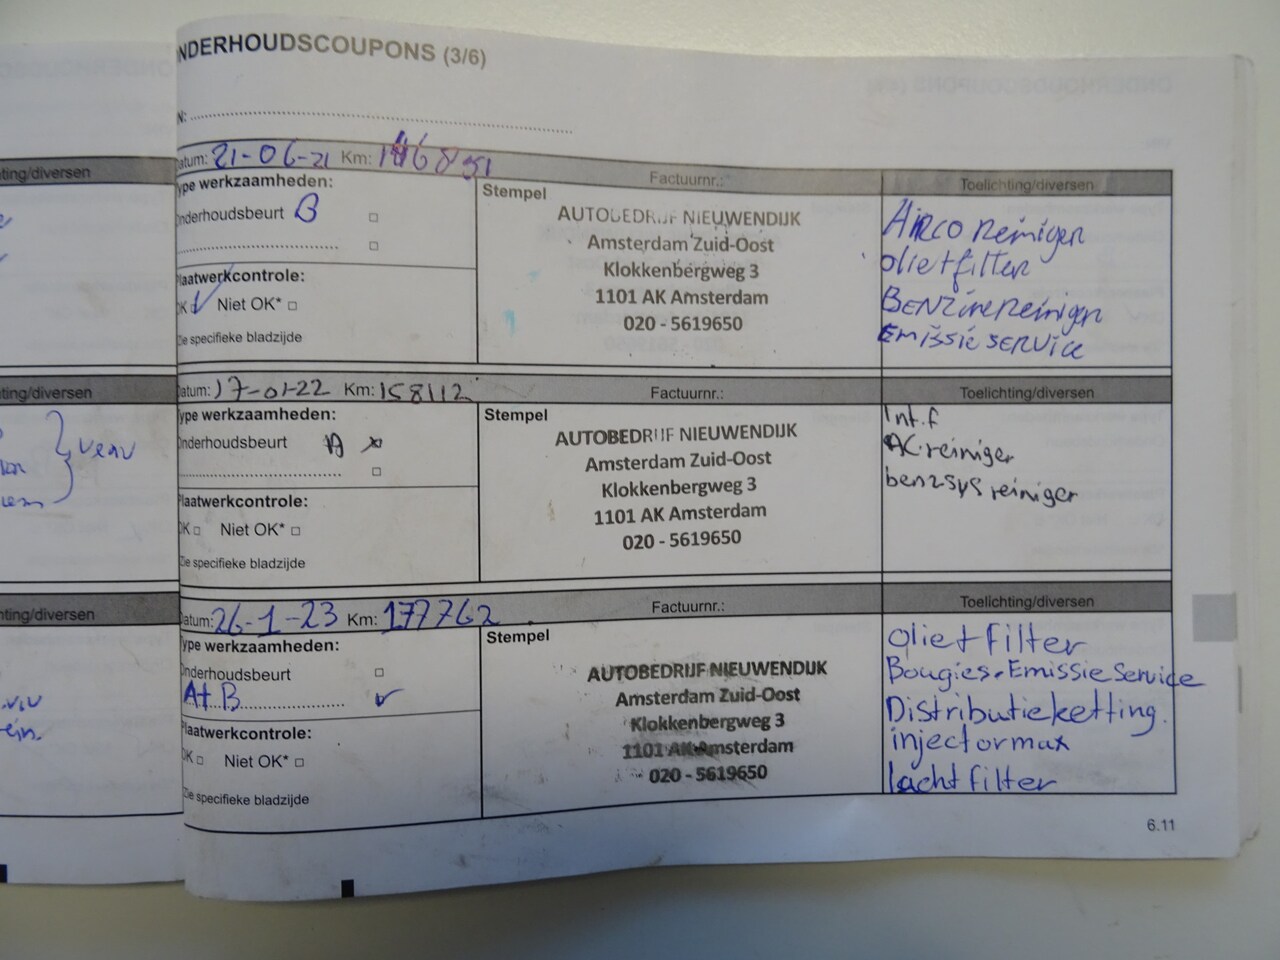 NDERHOUDSCOUPONS (3/6)
N:
nting/diversen
atum: 21-06-21 Km: 146851 Factuurnr.: Toelichting/diversen
ype werkzaamheden:
nderhoudsbeurt B
laatwerkcontrole:
OK Niet OK*
Zie specifieke bladzijde
Stempel
AUTOBEDRIJF NIEUWENDIJK
Amsterdam Zuid-Oost
Klokkenbergweg 3
1101 AK Amsterdam
020 - 5619650
AIRCO Reiniger
oliet filter
BENZINEREINIGER
EMISSIE SERVICE
nting/diversen
veav
Datum: 17-01-22 Km: 158112 Factuurnr.: Toelichting/diversen
Type werkzaamheden:
Onderhoudsbeurt A
Plaatwerkcontrole:
OK Niet OK*
Zie specifieke bladzijde
Stempel
AUTOBEDRIJF NIEUWENDIJK
Amsterdam Zuid-Oost
Klokkenbergweg 3
1101 AK Amsterdam
020 - 5619650
Int.f
AC.reiniger
benz-sys reiniger
nting/diversen
Datum: 26-1-23 Km: 177762 Factuurnr.: Toelichting/diversen
Type werkzaamheden:
Onderhoudsbeurt
A+B
Plaatwerkcontrole:
OK Niet OK*
Zie specifieke bladzijde
Stempel
AUTOBEDRIJF NIEUWENDIJK
Amsterdam Zuid-Oost
Klokkenbergweg 3
1101 AK Amsterdam
020 - 5619650
oliet filter
Bougies. Emissie Service
Distributieketting.
injectormax
lucht filter
6.11